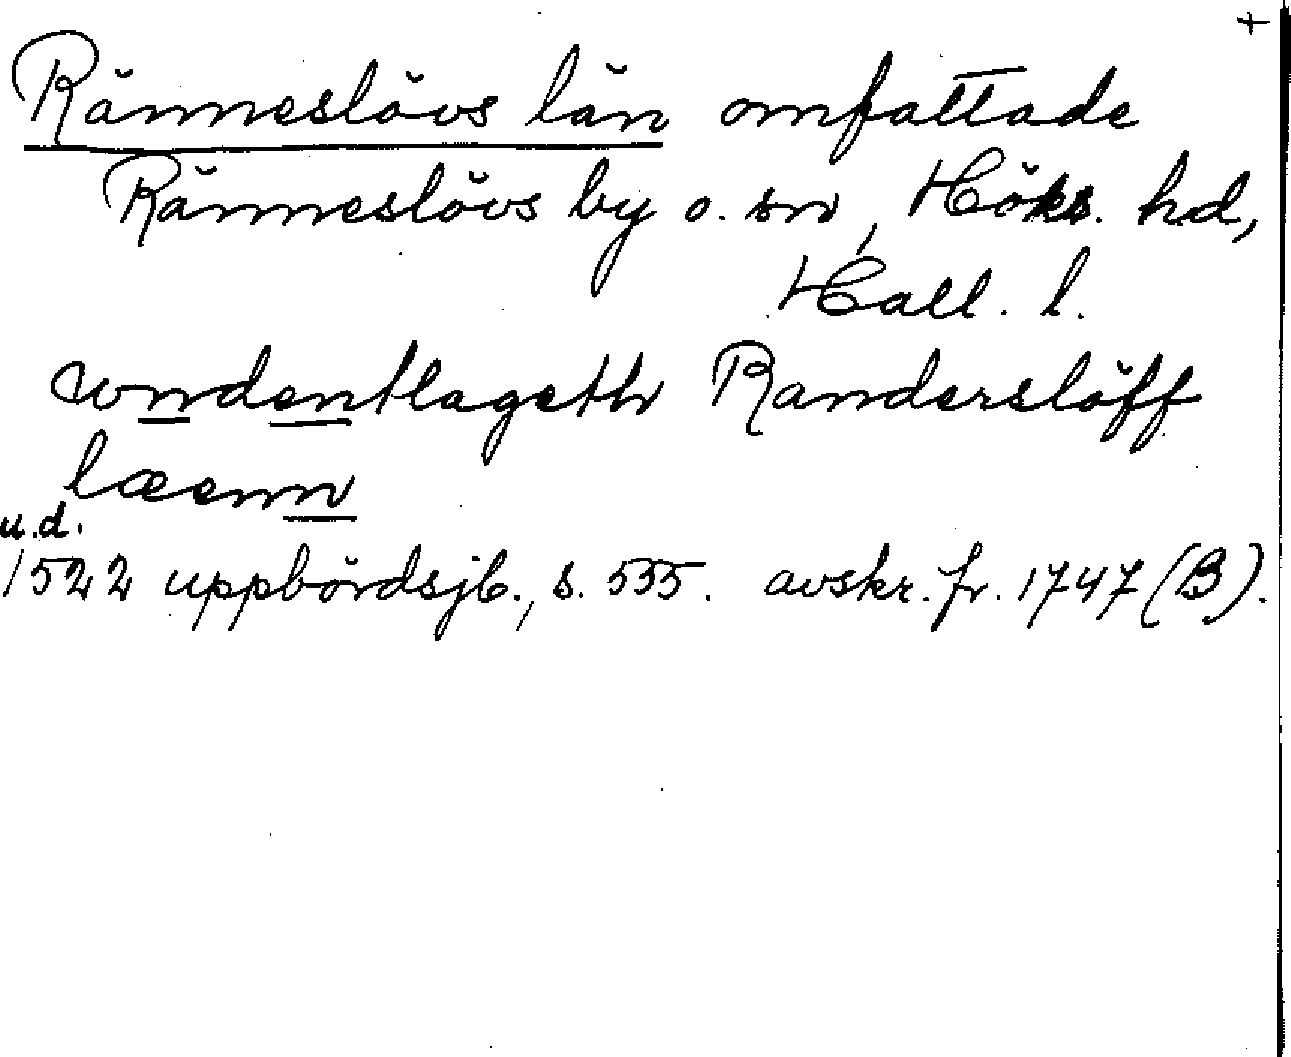 +
Ränneslövs län omfattade
Ränneslövs by o. sn, Höks. hd,
Hall. l.
wndentlageth Randerslöff
læenn
u.d.
1522 uppbördsjb., s. 535. avskr. fr. 1747 (B).